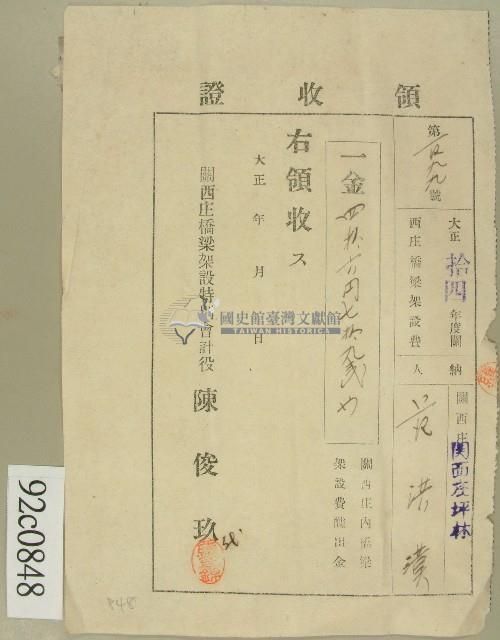 領收證
第一百九九號
大正拾四年度關
西庄橋梁架設費
納人
關西庄
関西庄坪林
范洪璞
一金四拾六円七拾九戋也
關西庄內橋梁
架設費醵出金
右領收ス
大正 年 月 日
關西庄橋梁架設特別會計役 陳俊玖
國史館臺灣文獻館
TAIWAN HISTORICA
92c0848
P48